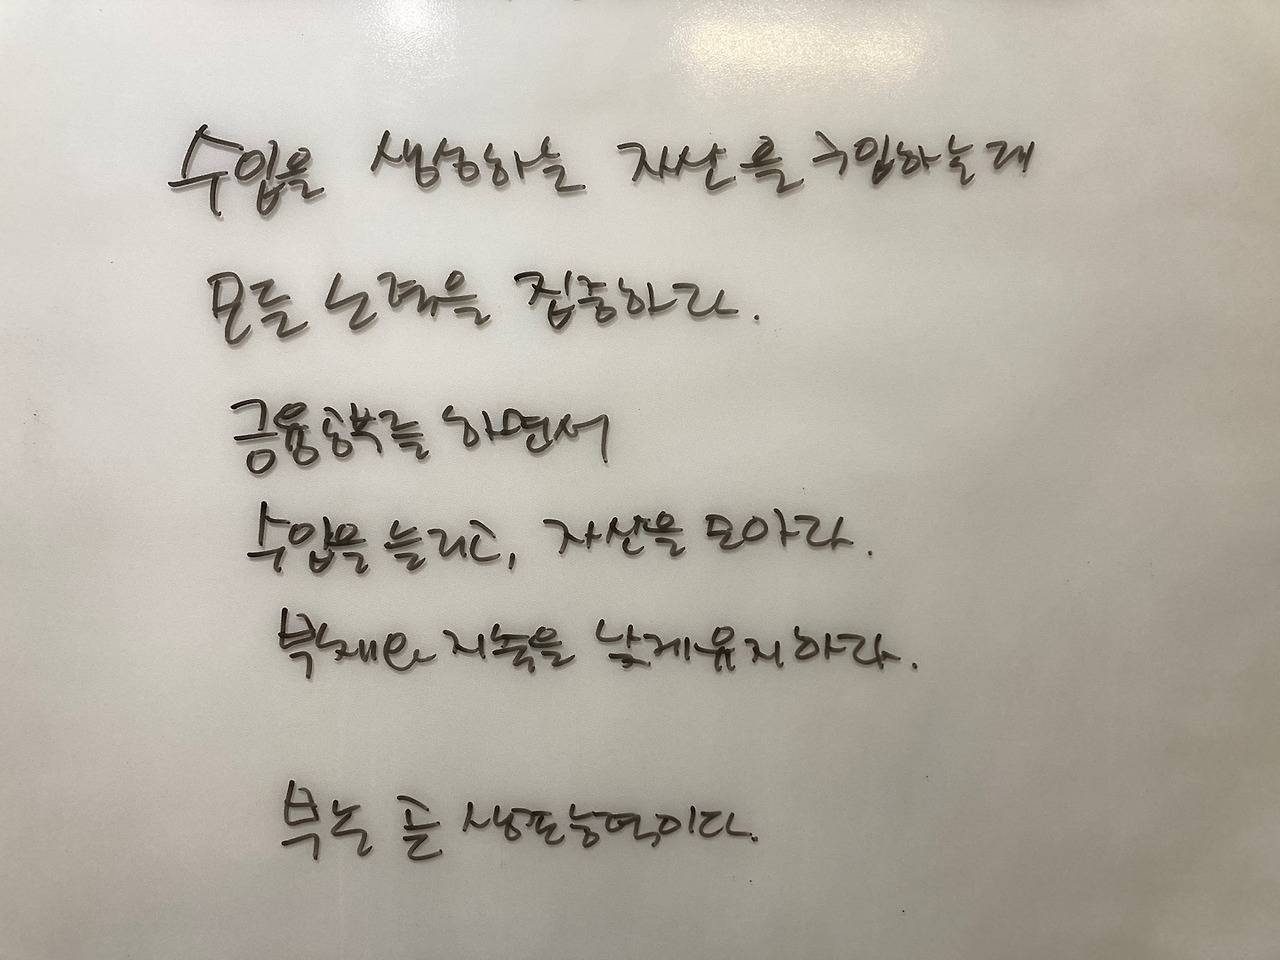 수입을 생성하는 자산을 구입하는데
모든 노력을 집중하라.
금융공부를 하면서
수입을 늘리고, 자산을 모아라.
부채와 지출을 낮게유지하라.
부는 곧 생존능력이다.